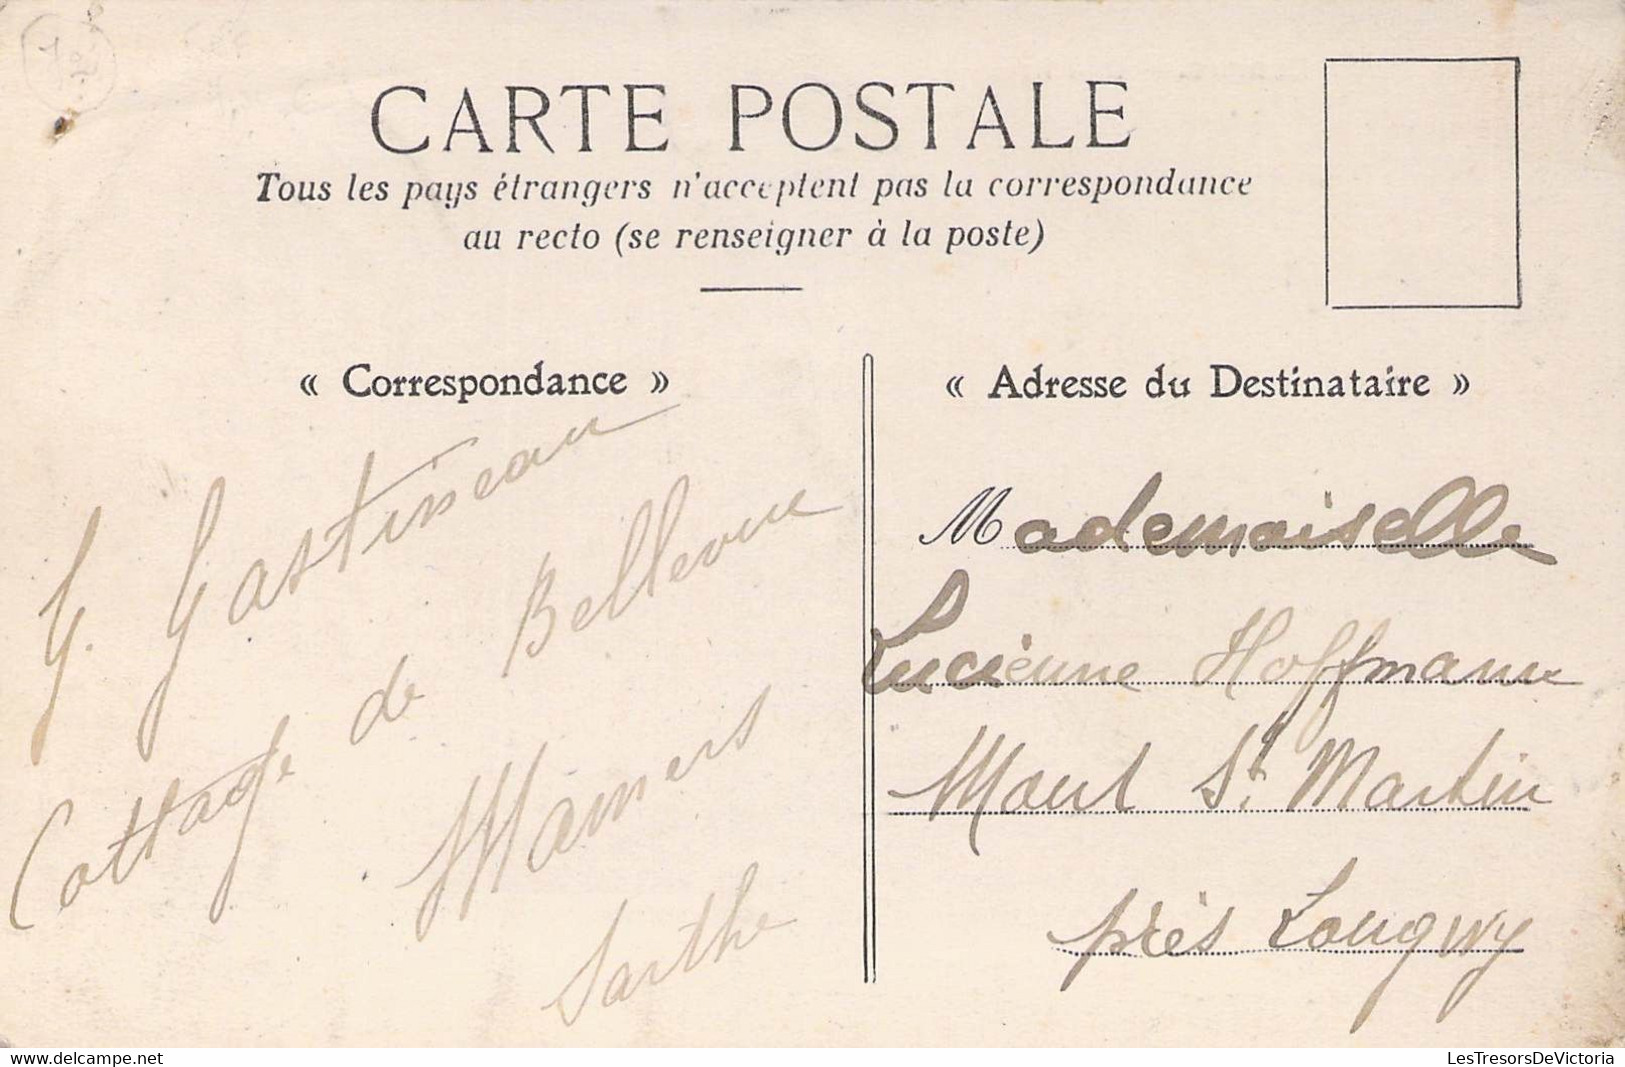 CARTE POSTALE
Tous les pays étrangers n'acceptent pas la correspondance
au recto (se renseigner à la poste)
« Correspondance »
G. Gastineau
Cottage de Bellevue
Mamers
Sarthe
« Adresse du Destinataire »
Mademoiselle
Lucienne Hoffmann
Mont St. Martin
près Longwy
www.delcampe.net
LesTresorsDeVictoria